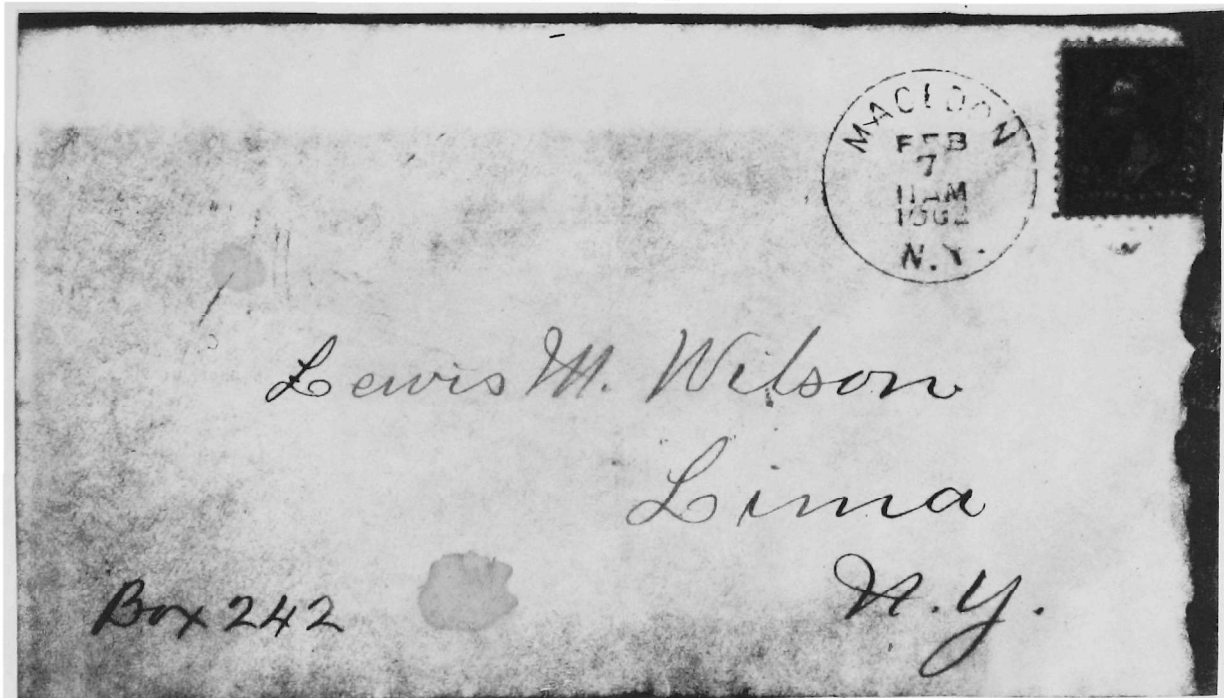 MACEDON
FEB
7
11 AM
1902
N.Y.
Lewis M. Wilson
Lima
N.Y.
Box 242